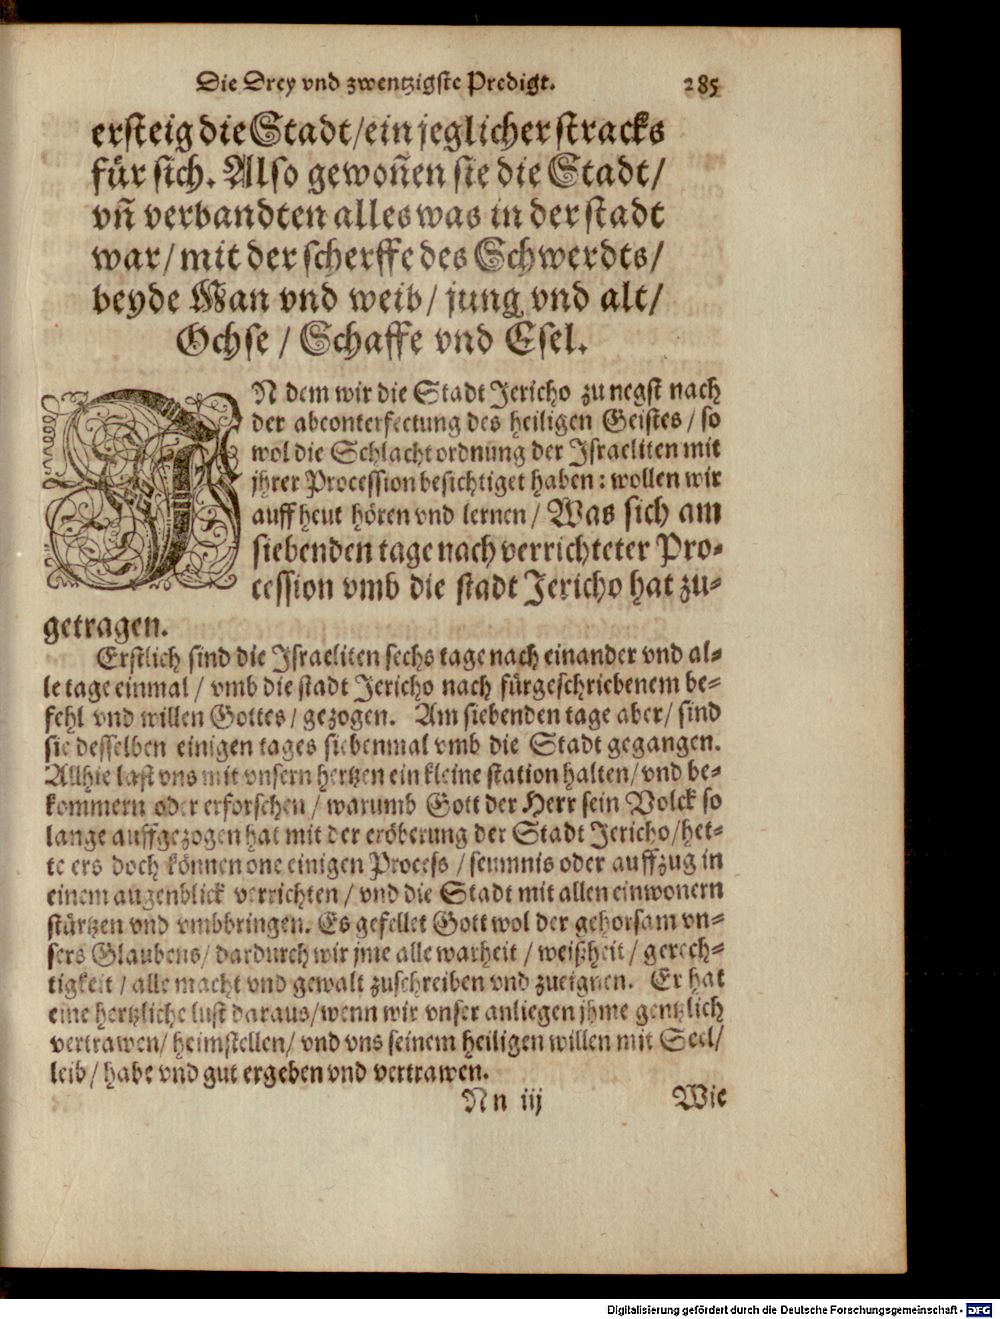 Die Drey vnd zwentzigste Predigt. 285
ersteig die Stadt/ein jeglicher stracks
für sich. Also gewoñen sie die Stadt/
vñ verbandten alles was in der stadt
war/mit der scherffe des Schwerdts/
beyde Man vnd weib/ jung vnd alt/
Ochse / Schaffe vnd Esel.
IN dem wir die Stadt Jericho zu negst nach
der abconterfectung des heiligen Geistes / so
wol die Schlachtordnung der Israeliten mit
jhrer Procession besichtiget haben: wollen wir
auff heut hören vnd lernen / Was sich am
siebenden tage nach verrichteter Pro-
cession vmb die stadt Jericho hat zu-
getragen.
Erstlich sind die Israeliten sechs tage nach einander vnd al-
le tage einmal / vmb die stadt Jericho nach fürgeschriebenem be-
fehl vnd willen Gottes / gezogen. Am siebenden tage aber/ sind
sie desselben einigen tages siebenmal vmb die Stadt gegangen.
Allhie last vns mit vnsern hertzen ein kleine station halten/ vnd be-
kommern oder erforschen / warumb Gott der Herr sein Volck so
lange auffgezogen hat mit der eröberung der Stadt Jericho/het-
te ers doch können one einigen Process / seumnis oder auffzug in
einem augenblick verrichten / vnd die Stadt mit allen einwonern
stürtzen vnd vmbbringen. Es gefellet Gott wol der gehorsam vn-
sers Glaubens/ dardurch wir jme alle warheit / weißheit / gerech-
tigkeit / alle macht vnd gewalt zuschreiben vnd zueignen. Er hat
eine hertzliche lust daraus/wenn wir vnser anliegen jhme gentzlich
vertrawen/ heimstellen/ vnd vns seinem heiligen willen mit Seel/
leib/ habe vnd gut ergeben vnd vertrawen.
Nn iij Wie
Digitalisierung gefördert durch die Deutsche Forschungsgemeinschaft - DFG